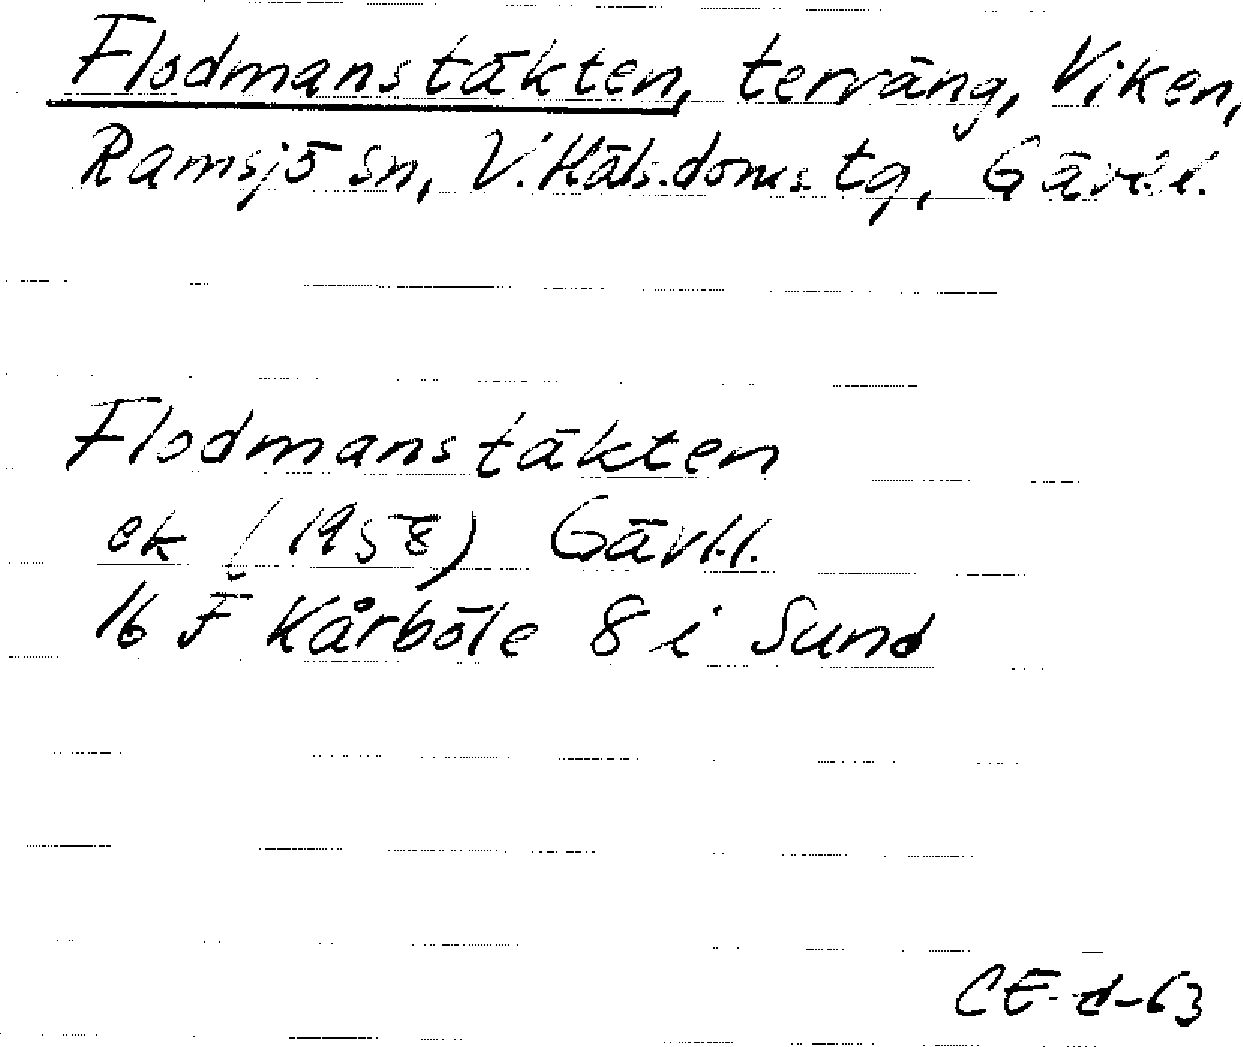 Flodmanstäkten, terräng, Viken,
Ramsjö sn, V. Häls. doms. tg, Gävl.l.
Flodmanstäkten
ek (1958) Gävl.l.
16 F Kårböle 8 i Sund
CE-d-63